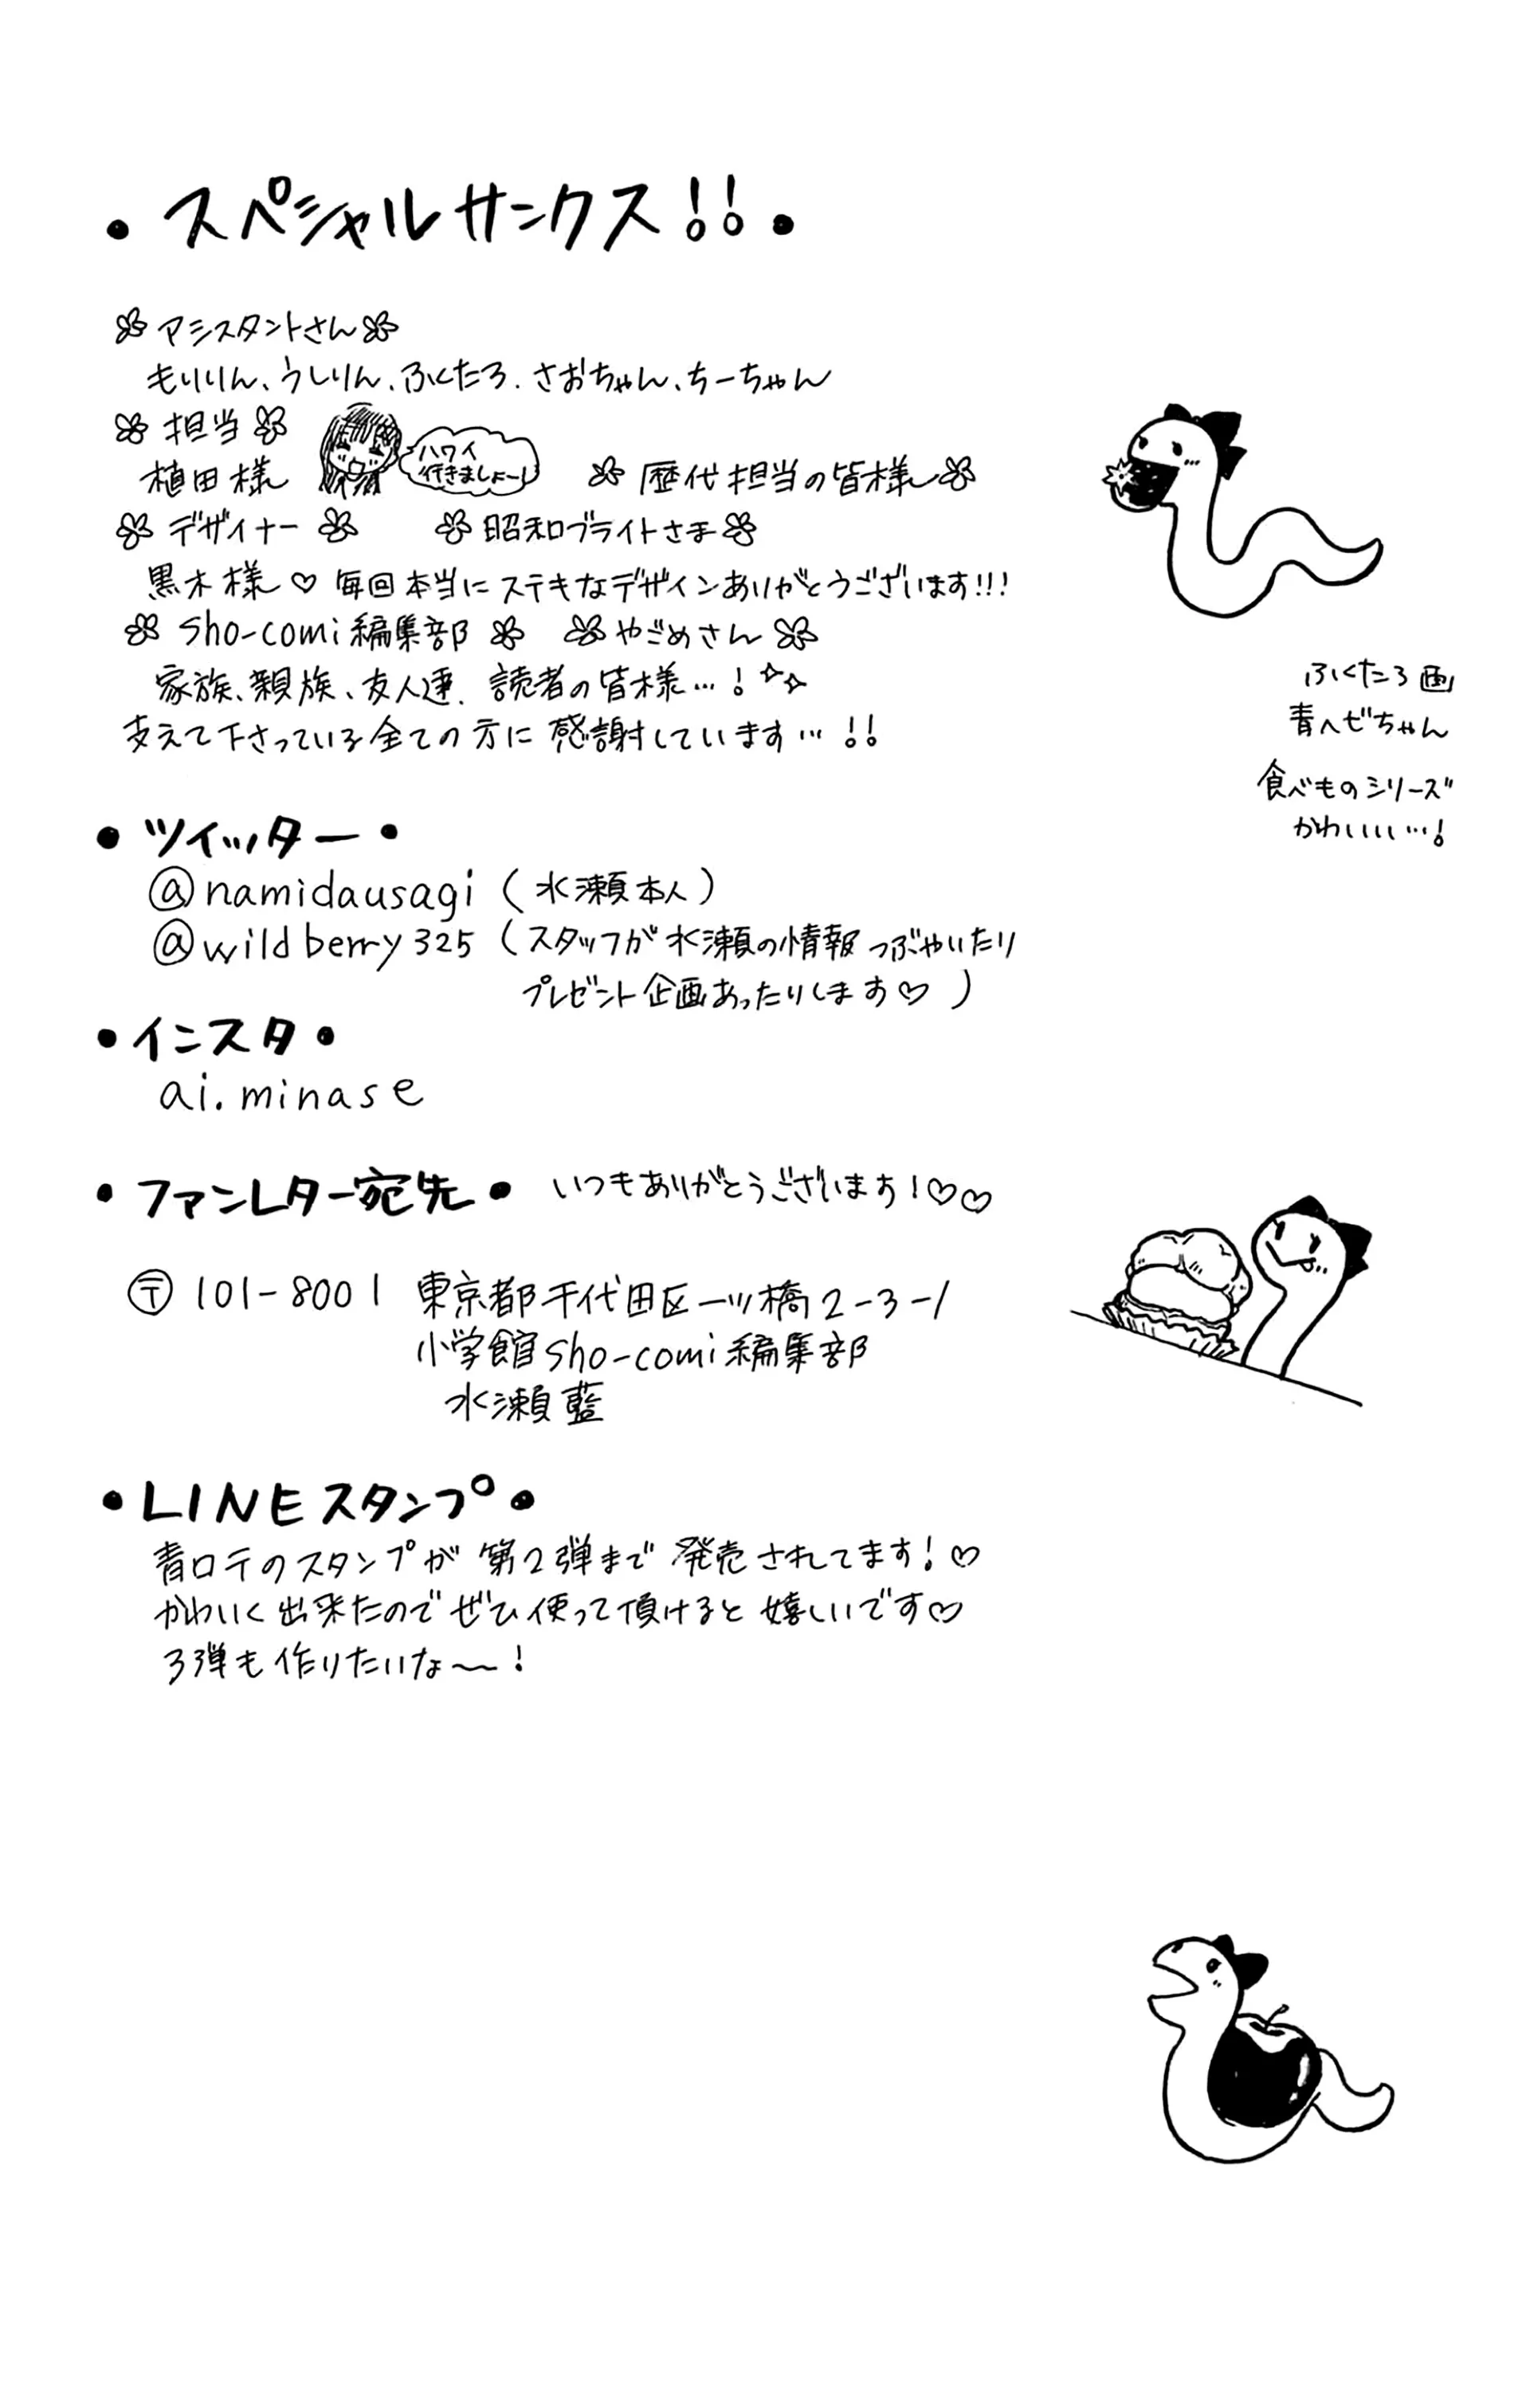 ・スペシャルサンクス!!・
アシスタントさん
もりりん、うしりん、ふくたろ、さおちゃん、ちーちゃん
担当
植田様
ハワイ
行きましょー!
歴代担当の皆様
デザイナー
昭和ブライトさま
黒木様♡毎回本当にステキなデザインありがとうございます!!!
Sho-comi編集部
やごめさん
家族、親族、友人達、読者の皆様…!
支えて下さっている全ての方に感謝しています…!!
ふくたろ画
青ヘビちゃん
食べものシリーズ
かわいいい…!
・ツイッター・
@namidausagi(水瀬本人)
@wildberry325(スタッフが水瀬の情報つぶやいたり
プレゼント企画あったりします♡)
・インスタ・
ai.minase
・ファンレター宛先・ いつもありがとうございます!♡♡
〒101-8001 東京都千代田区一ツ橋2-3-1
小学館Sho-comi編集部
水瀬藍
・LINEスタンプ・
青ロテのスタンプが第2弾まで発売されてます!♡
かわいく出来たのでぜひ使って頂けると嬉しいです♡
3弾も作りたいな〜!